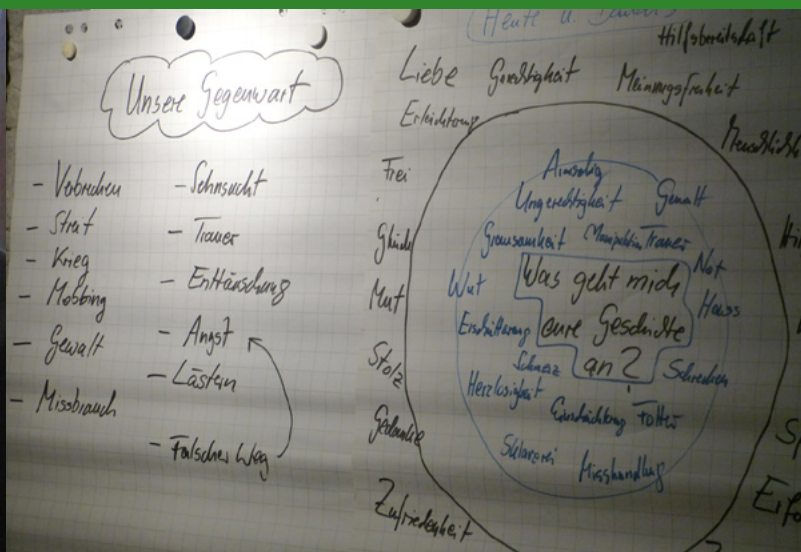 Unsere Gegenwart
- Verbrechen
- Streit
- Krieg
- Mobbing
- Gewalt
- Missbrauch
- Sehnsucht
- Trauer
- Enttäuschung
- Angst
- Lästern
- Falscher Weg
Heute u.
Hilfsbereitschaft
Liebe Gerechtigkeit Meinungsfreiheit
Frei
Glück
Mut
Stolz
Gedanke
Zufriedenheit
Ungerechtigkeit Gewalt
Grausamkeit Manipulation Trauer
Wut
Not
Hass
Was geht mich
eure Geschichte
an?
Erschütterung
Schmerz
Schrecken
Herzlosigkeit
Folter
Sklaverei
Misshandlung